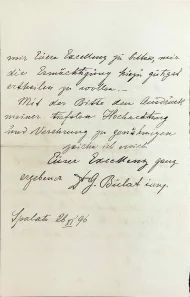 mir Euere Exzellenz zu bitten, mir
die Ermächtigung hiezu gütigst
ertheilen zu wollen.
Mit der Bitte den Ausdruck
meiner tiefsten Hochachtung
und Verehrung zu genehmigen
zeichne ich mich
Euer Exzellenz ganz
ergebener A. G. Bulat iung.
Spalato 26/XI 96